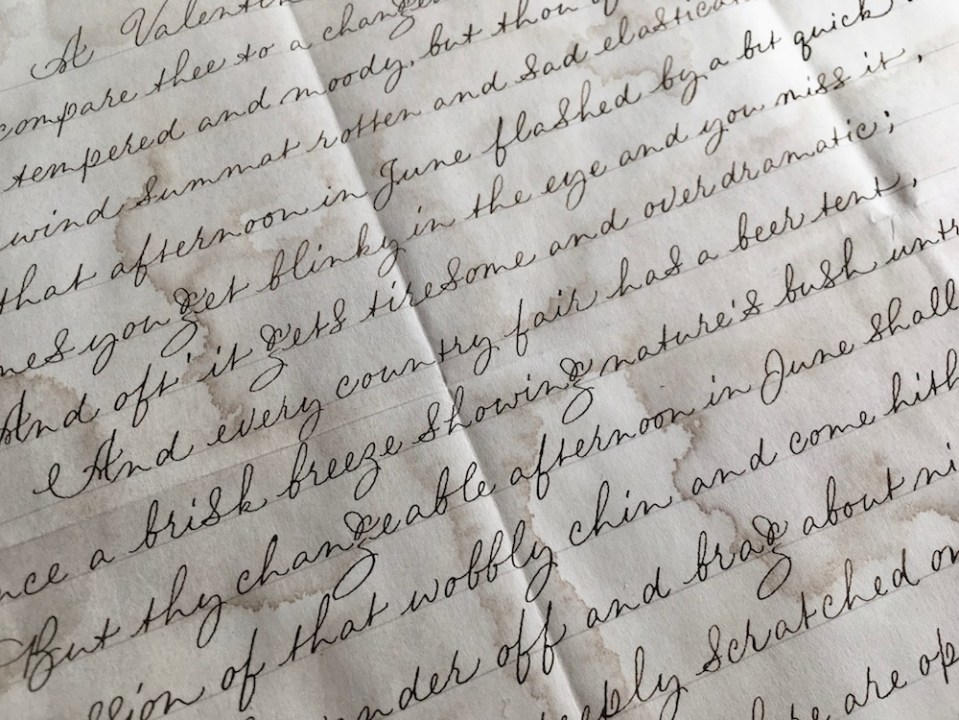 A Valentin
compare thee to a change
tempered and moody, but thou
wind summat rotten and sad elastica
that afternoon in June flashed by a bit quick
mes you get blinky in the eye and you miss it,
And oft' it gets tiresome and overdramatic;
And every country fair has a beer tent,
nce a brisk breeze showing nature's bush untr
But thy changeable afternoon in June shall
ssion of that wobbly chin and come hith
nder off and brag about ni
eply scratched on
are op